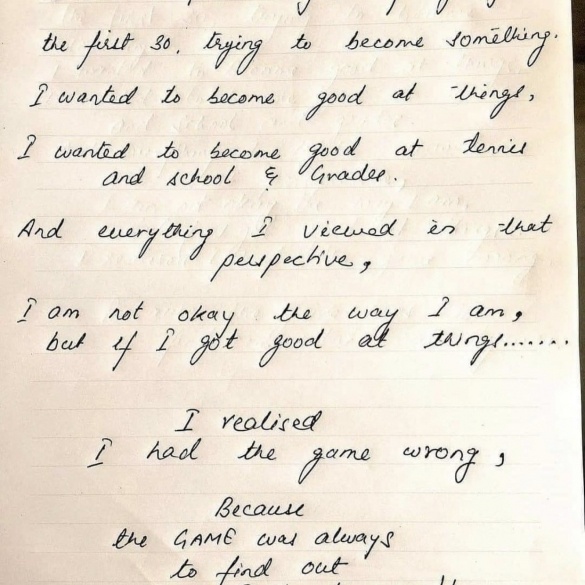 the first 30, trying to become something.
I wanted to become good at things,
I wanted to become good at tennis
and school & Grades.
And everything I viewed in that
perspective,
I am not okay the way I am,
but if I got good at things.......
I realised
I had the game wrong,
Because
the GAME was always
to find out